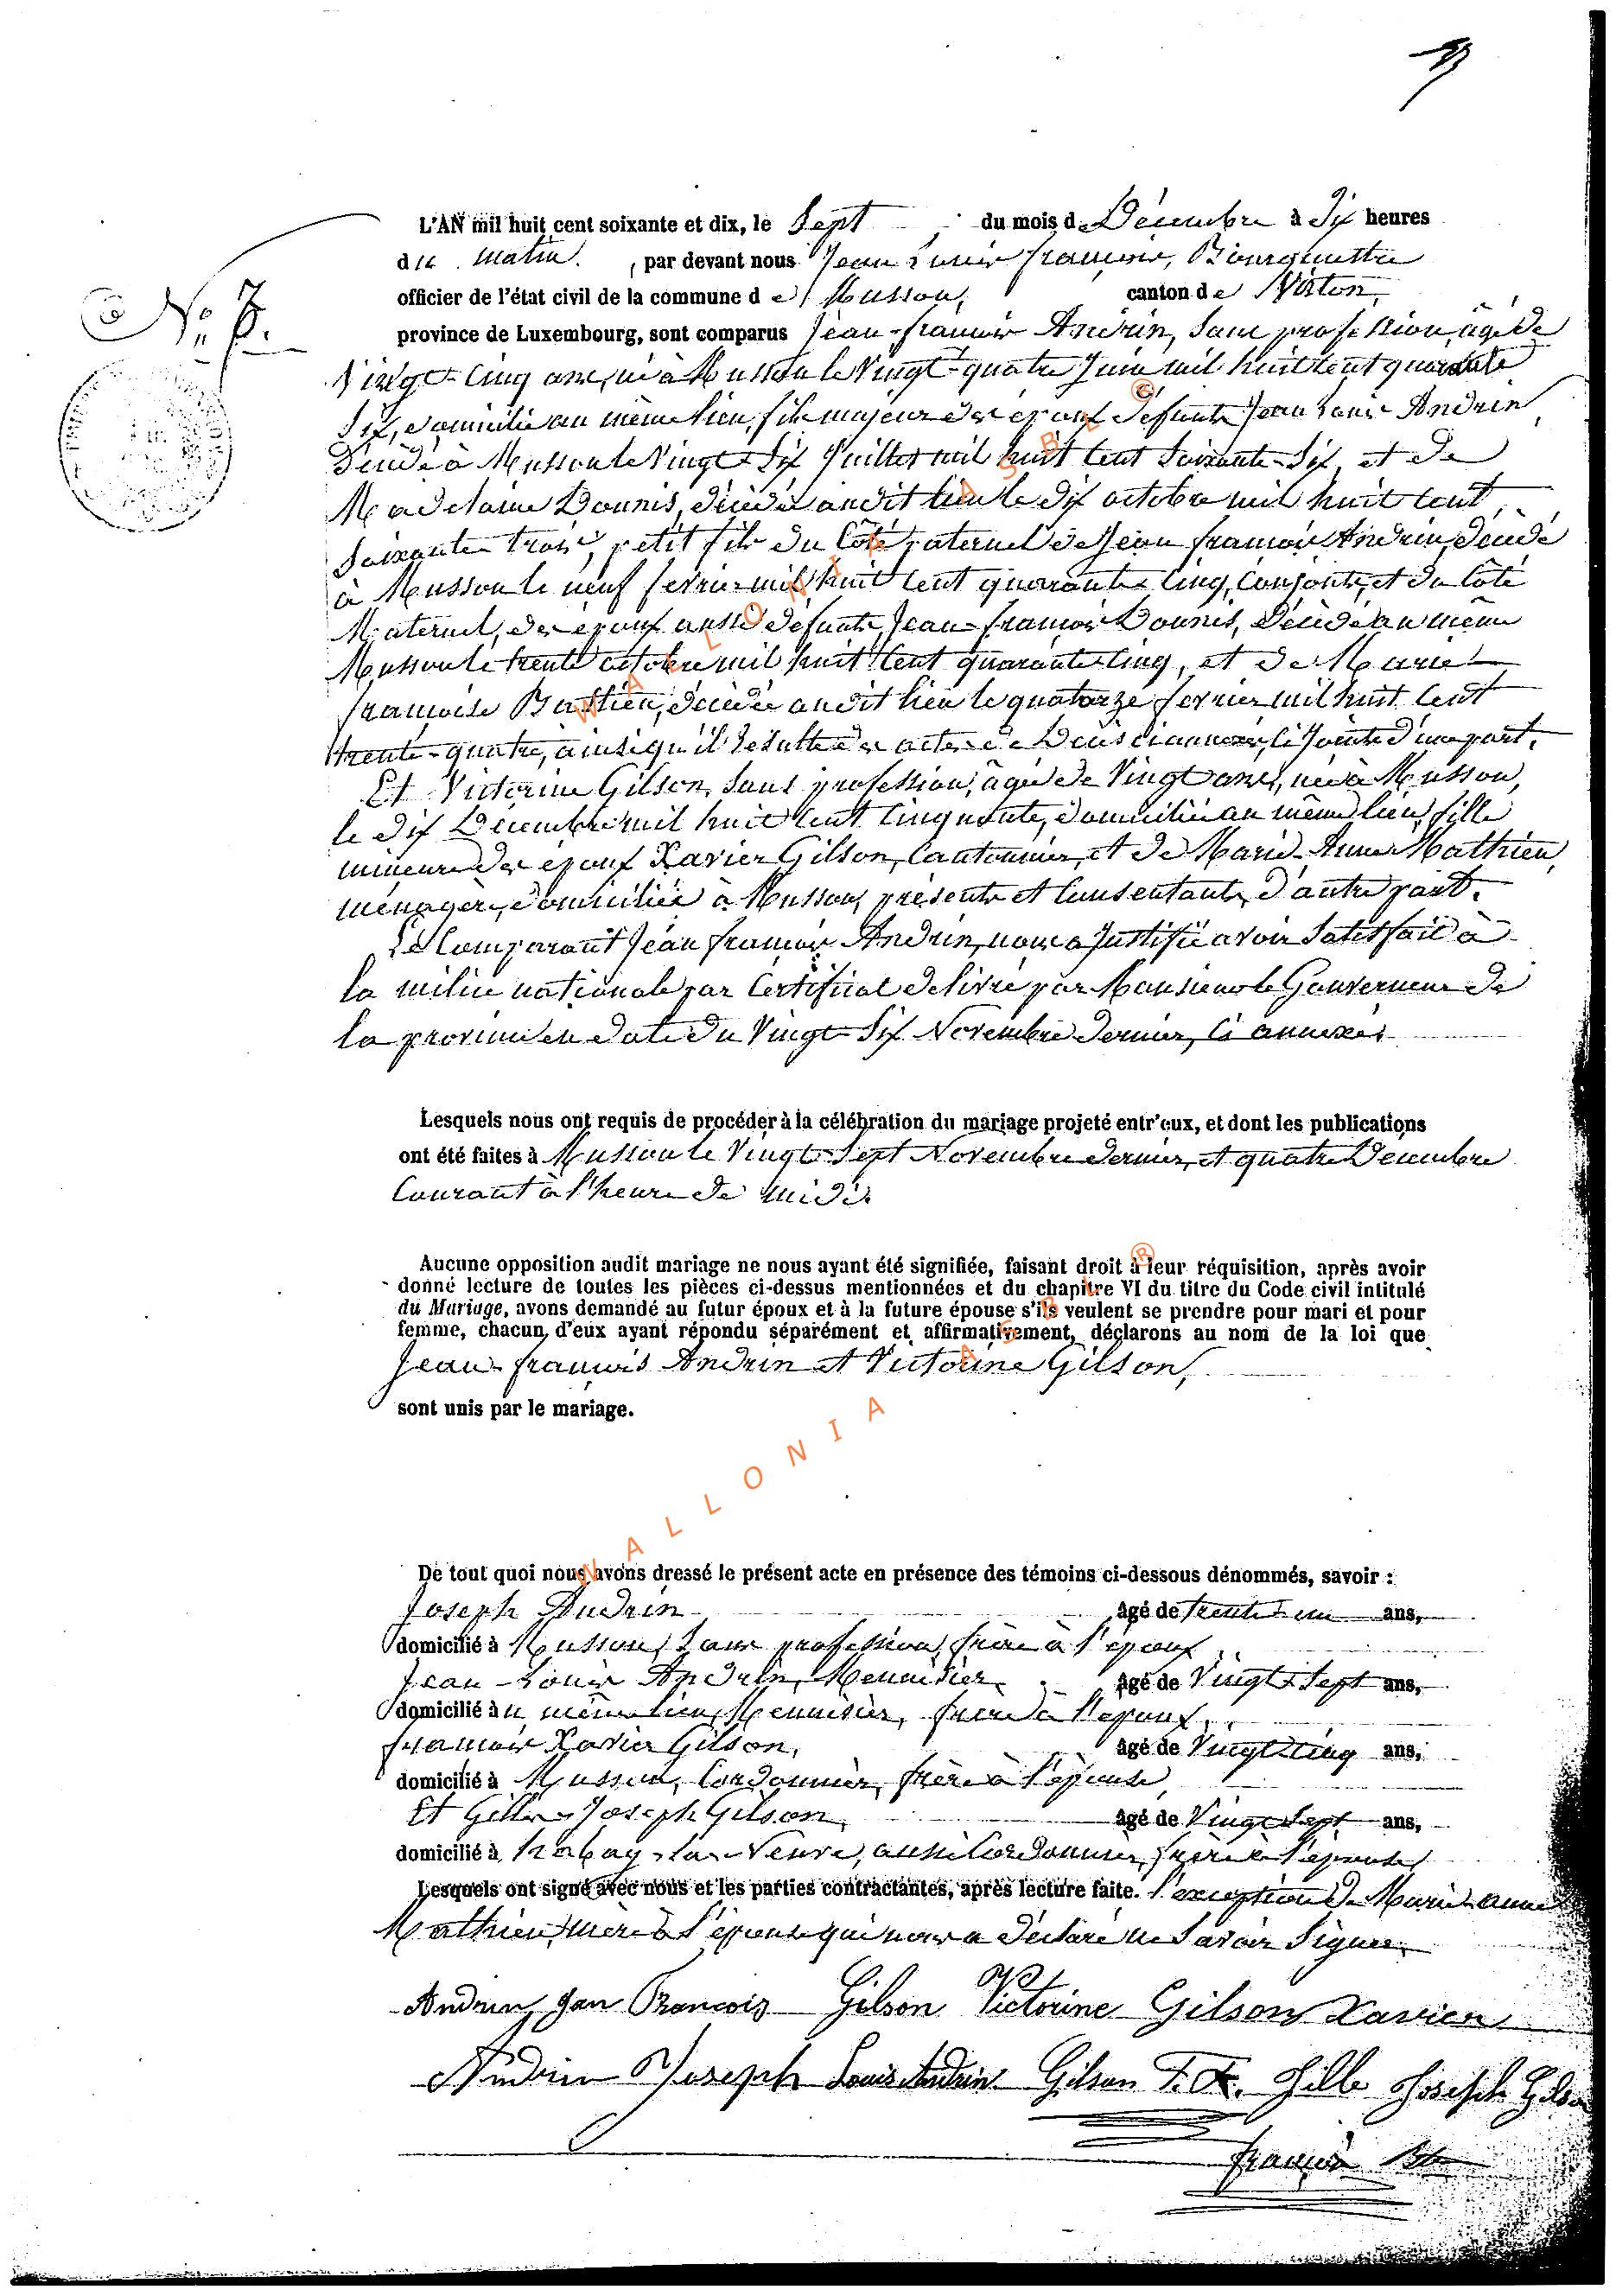 N° 7.
L'AN mil huit cent soixante et dix, le Sept du mois de Décembre à Dix heures
du matin, par devant nous Jean Louis François, Bourgmestre
officier de l'état civil de la commune de Musson, canton de Virton,
province de Luxembourg, sont comparus Jean-François Andrin, Sans profession, âgé de
Vingt-Cinq ans, né à Musson le Vingt-quatre Juin mil huit Cent quarante
Six, domicilié au même lieu, fils majeur des époux défunts Jean Louis Andrin,
Décédé à Musson le Vingt-Six Juillet mil huit Cent Soixante-Six, et de
Madelaine Dounis, décédée audit lieu le dix octobre mil huit Cent
Soixante-trois, petit fils du Côté paternel de Jean François Andrin, décédé
à Musson le neuf fevrier mil huit Cent quarante-Cinq, Conjoints, et du Côté
Maternel, des époux aussi défunts, Jean-François Dounis, Décédé au même
Musson le trente octobre mil huit Cent quarante-Cinq, et de Marie
françoise Bastien, décédée audit lieu le quatorze fevrier mil huit Cent
trente-quatre, ainsi qu'il résulte des actes de Décès ci annexés, Ci Joints d'une part.
Et Victorine Gilson, Sans profession, âgée de Vingt ans, née à Musson,
le dix Décembre mil huit Cent Cinquante, domiciliée au même lieu, fille
mineure des époux Xavier Gilson, Cantonnier, et de Marie-Anne Mathieu,
ménagère, domiciliés à Musson, présents et Consentants, d'autre part.
Le Comparant Jean François Andrin, nous a Justifié avoir Satisfait à
la milice nationale par Certificat delivré par Monsieur le Gouverneur de
la province en date du Vingt-Six Novembre dernier, Ci annexé.
Lesquels nous ont requis de procéder à la célébration du mariage projeté entr'eux, et dont les publications
ont été faites à Musson le Vingt-Sept Novembre dernier, et quatre Décembre
Courant à l'heure de midi.
Aucune opposition audit mariage ne nous ayant été signifiée, faisant droit à leur réquisition, après avoir
donné lecture de toutes les pièces ci-dessus mentionnées et du chapitre VI du titre du Code civil intitulé
du Mariage, avons demandé au futur époux et à la future épouse s'ils veulent se prendre pour mari et pour
femme, chacun d'eux ayant répondu séparément et affirmativement, déclarons au nom de la loi que
Jean-François Andrin et Victorine Gilson,
sont unis par le mariage.
De tout quoi nous avons dressé le présent acte en présence des témoins ci-dessous dénommés, savoir :
Joseph Andrin âgé de trente-un ans,
domicilié à Musson, Sans profession, frère à l'époux
Jean-Louis Andrin, Menuisier, âgé de Vingt-Sept ans,
domicilié au même lieu, Menuisier, frère à l'époux,
François Xavier Gilson, âgé de Vingt-Cinq ans,
domicilié à Musson, Cordonnier, frère à l'épouse,
Et Gille-Joseph Gilson, âgé de Vingt-Sept ans,
domicilié à habay-la-Neuve, aussi Cordonnier, frère à l'épouse,
Lesquels ont signé avec nous et les parties contractantes, après lecture faite. l'exception de Marie-anne
Mathieu, mère à l'épouse qui nous a déclaré ne Savoir Signer.
Andrin Jean François Gilson Victorine Gilson Xavier
Andrin Joseph Louis Andrin Gilson F. X. Gille Joseph Gilson
François
WALLONIA ASBL ®
WALLONIA ASBL ®